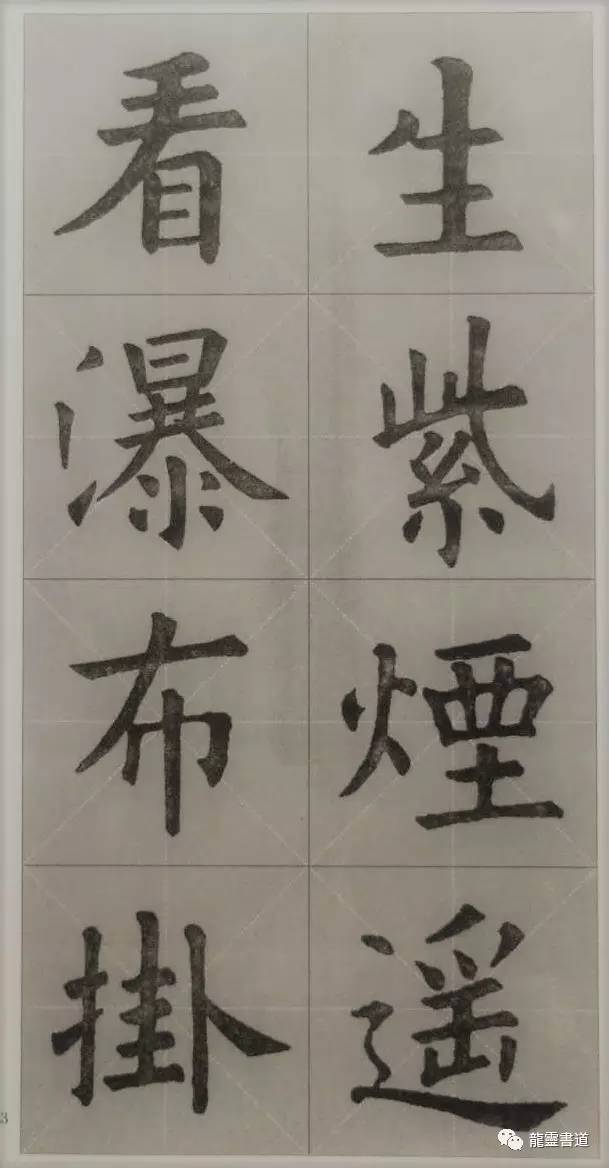 生紫煙遥
看瀑布掛
3
龍靈書道